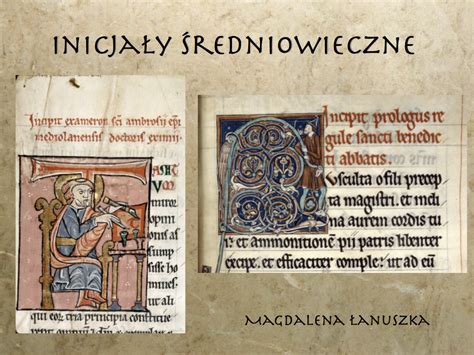 INICJAŁY ŚREDNIOWIECZNE
Incipit exameron scī ambrosii epī
mediolanensis doctoris eximii
opinio
nis as
ho
mines
ut ali
qui eor tria principia constitue
Incipit prologus re
gule sancti benedic
ti abbatis.
usculta o fili precep
ta magistri. et incli
na aurem cordis tu
i et ammonitionē pii patris libenter
excipe. et efficaciter comple: ut ad eū
MAGDALENA ŁANUSZKA